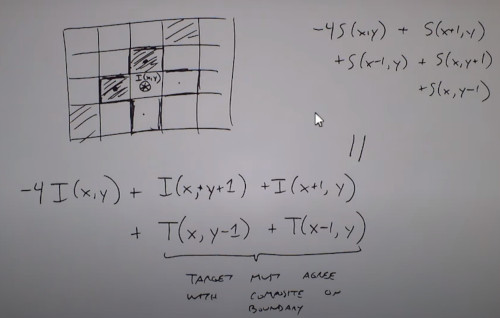 -4S(x,y) + S(x+1,y)
+S(x-1,y) + S(x,y+1)
+S(x,y-1)
I(x,y)
||
-4I(x,y) + I(x,+y+1) + I(x+1,y)
+ T(x,y-1) + T(x-1,y)
TARGET MUST AGREE
WITH COMPOSITE ON
BOUNDARY